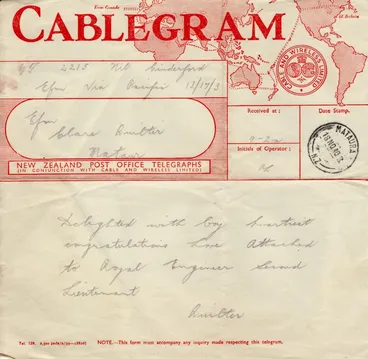 From Canada
To Gt. Britain
CABLEGRAM
CABLE AND WIRELESS LIMITED
4285 Nil Cinderford
Efm Via Pacific 13/17/3
Received at :
Date Stamp.
Efm
Clare Quilter
Mataura
9-2a
Initials of Operator :
MATAURA
N.Z.
NEW ZEALAND POST OFFICE TELEGRAPHS
(IN CONJUNCTION WITH CABLE AND WIRELESS LIMITED)
Delighted with boy heartiest
congratulations love Attached
to Royal Engineer Second
Lieutenant
Quilter
Tel. 129.
NOTE.—This form must accompany any inquiry made respecting this telegram.